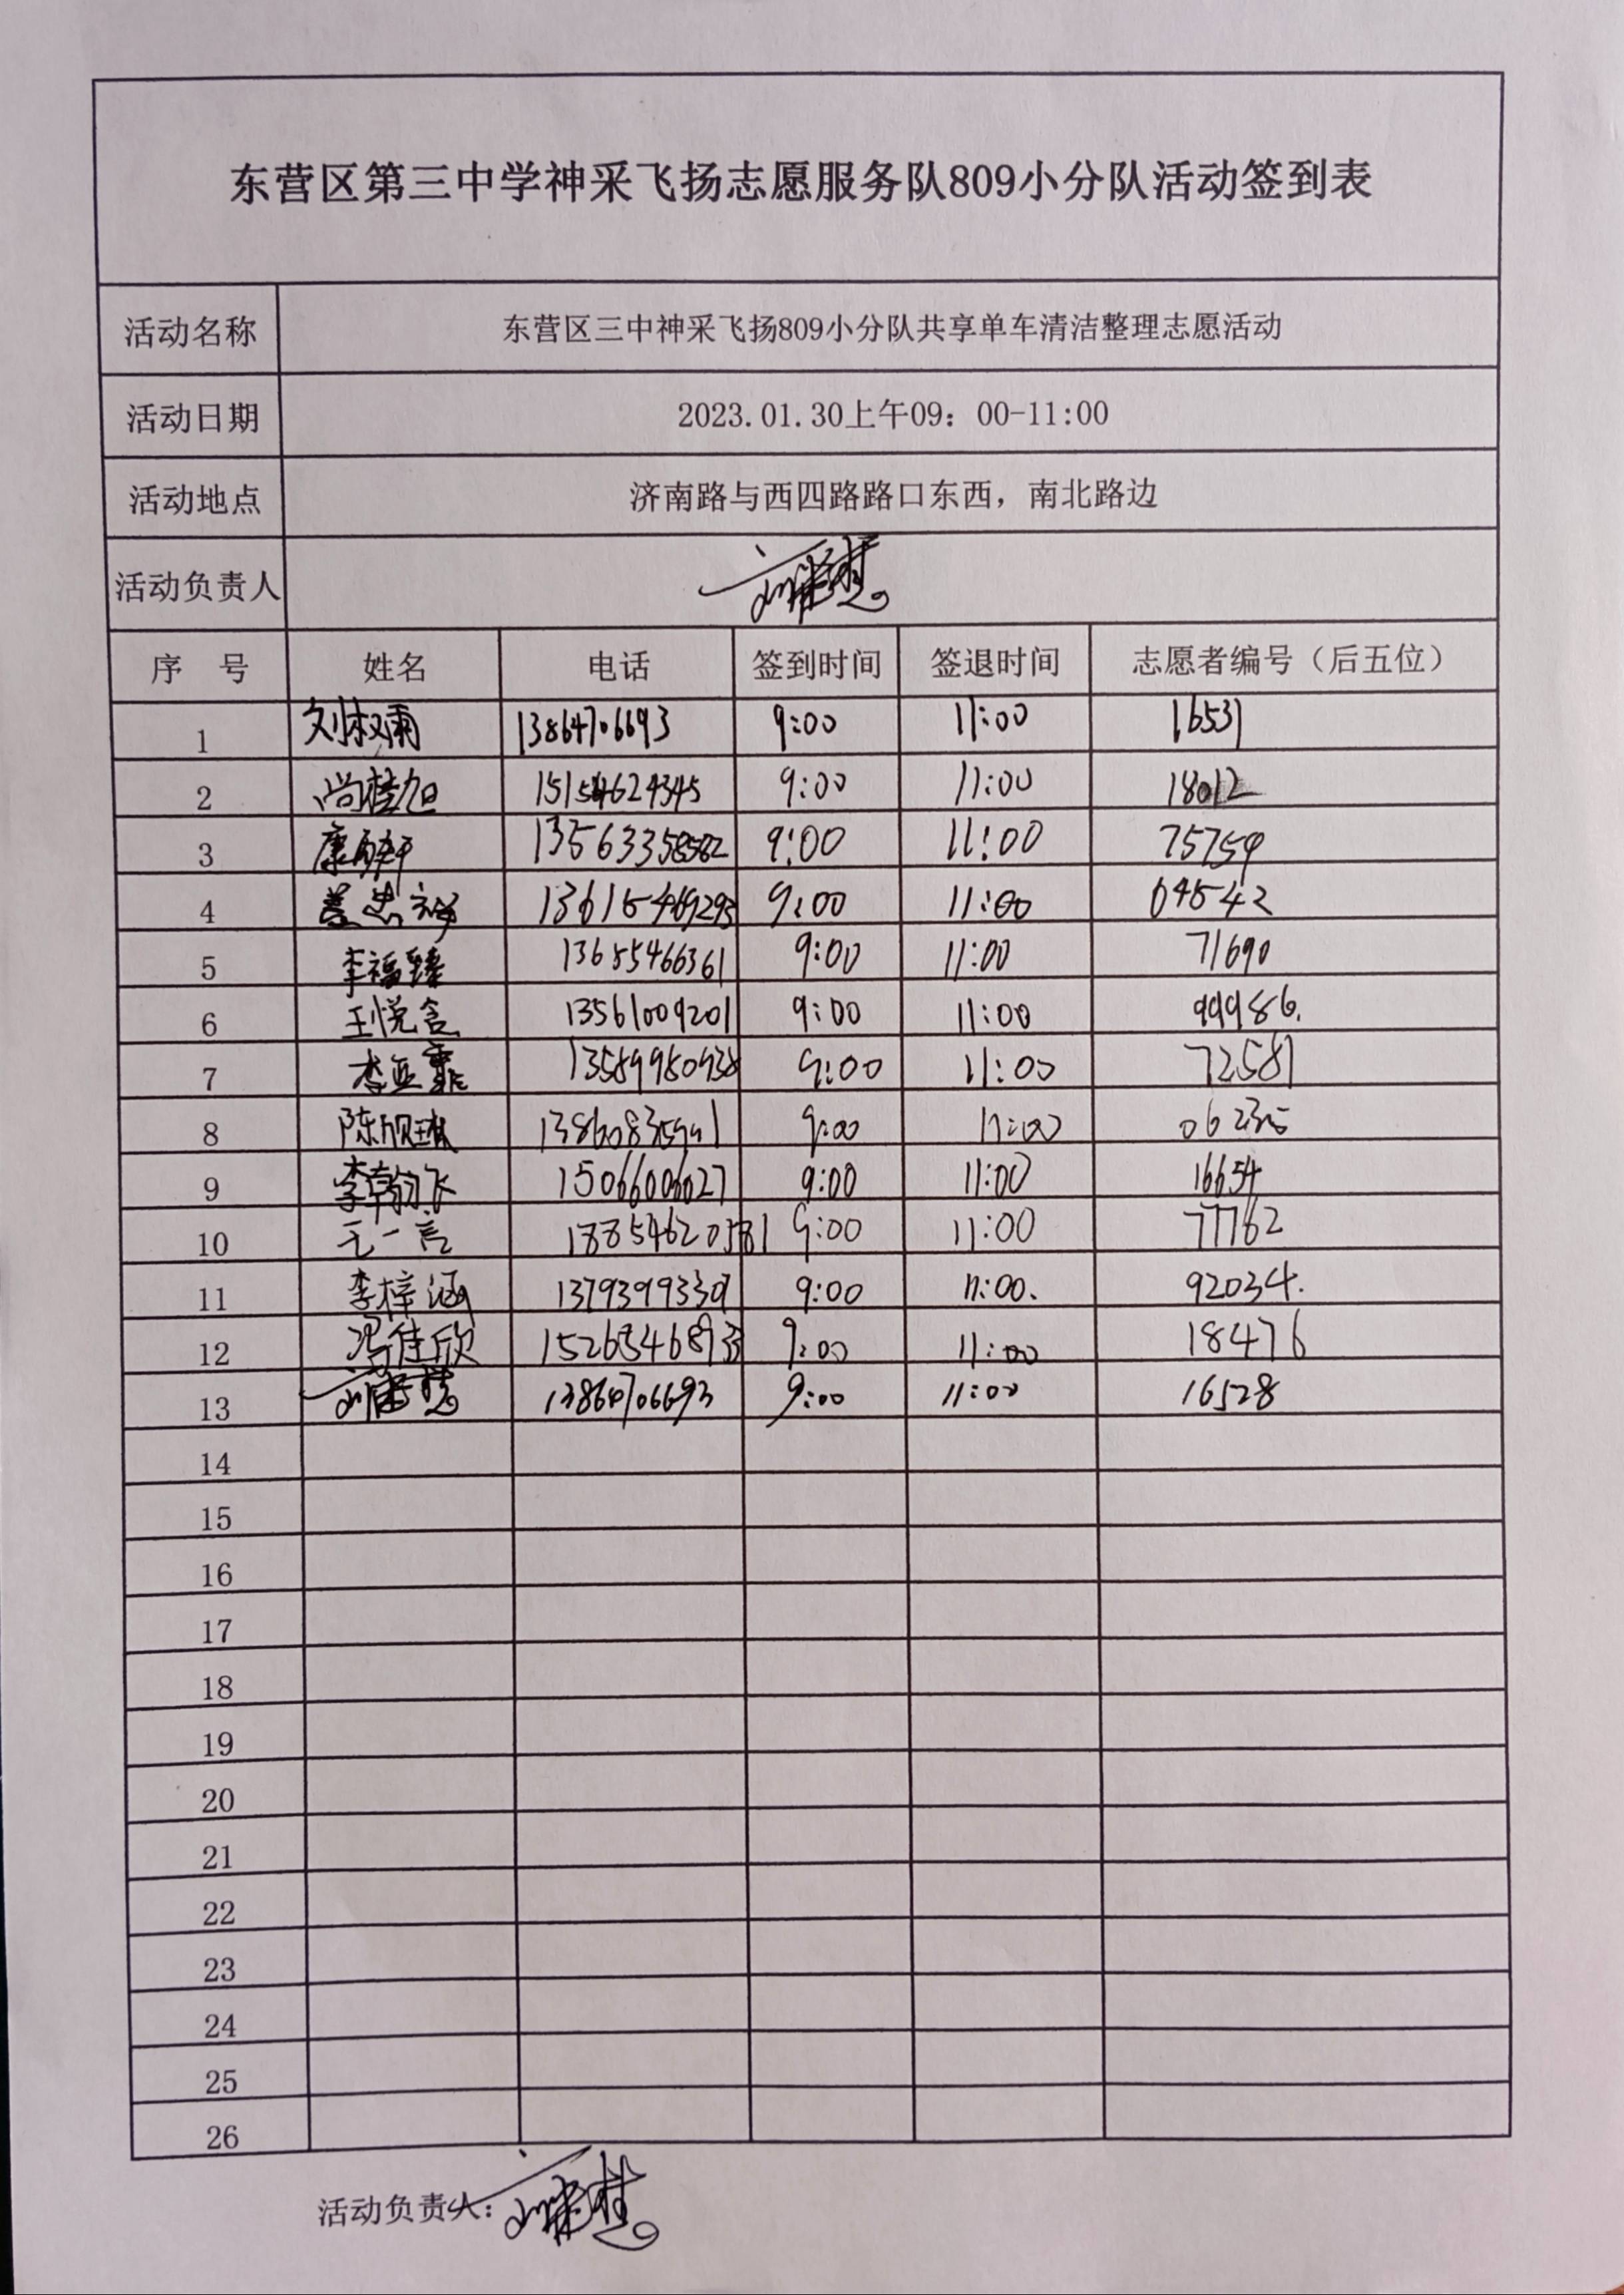 东营区第三中学神采飞扬志愿服务队809小分队活动签到表
活动名称 东营区三中神采飞扬809小分队共享单车清洁整理志愿活动
活动日期 2023.01.30上午09：00-11:00
活动地点 济南路与西四路路口东西，南北路边
活动负责人
序 号 姓名 电话 签到时间 签退时间 志愿者编号（后五位）
1 刘淑雨 13864706693 9:00 11:00 16531
2 尚桂旭 15154624345 9:00 11:00 18012
3 13563358582 9:00 11:00 75759
4 13615469293 9:00 11:00 04542
5 李福臻 13655466361 9:00 11:00 71690
6 王悦含 13561009201 9:00 11:00 99986.
7 13589980938 9:00 11:00 72581
8 9:00 11:00
9 李翰飞 15066006027 9:00 11:00 16654
10 王一言 18854620581 9:00 11:00 77762
11 李梓涵 13793993309 9:00 11:00. 92034.
12 冯佳欣 15266546893 9:00 11:00 18476
13 13864706693 9:00 11:00 16528
14
15
16
17
18
19
20
21
22
23
24
25
26
活动负责人：